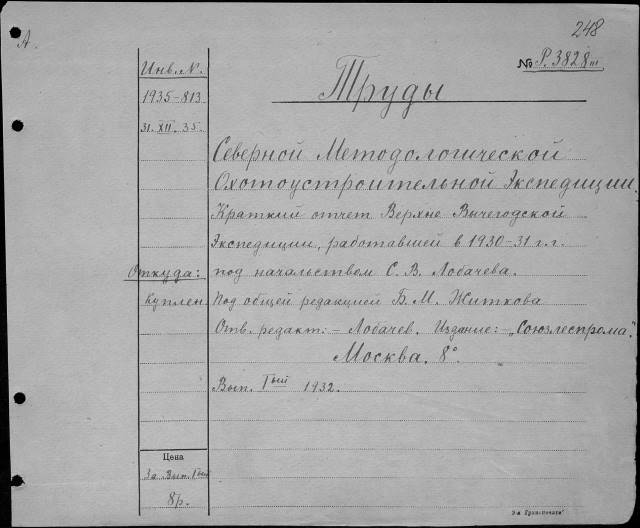 248
А.
№ Р.3828 III
Инв. №.
1935-813
31. XII. 35.
Труды
Северной Методологической
Охотоустроительной Экспедиции.
Краткий отчет Верхне Вычегодской
Экспедиции, работавшей в 1930-31 г.г.
Откуда:
под начальством С. В. Лобачева.
куплен
Под общей редакцией Б. М. Житкова
Отв. редакт: - Лобачев. Издание: - „Союзлеспрома".
Москва. 8°
Вып. Iый 1932.
Цена
За Вып. Iый
8р.